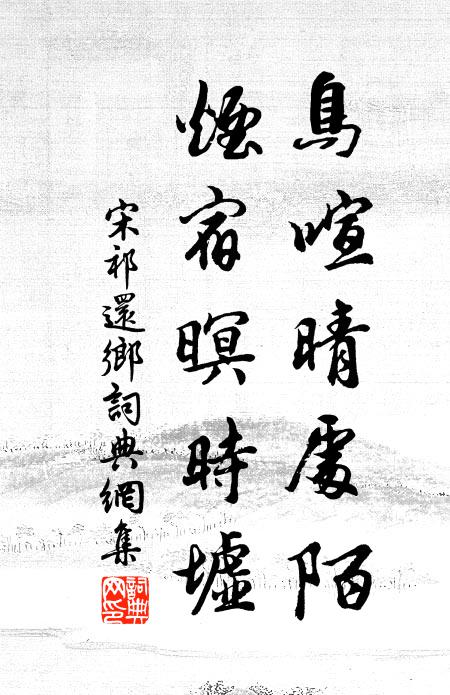 鳥喧晴處陌
煙宿暝時墟
宋祁還鄉詞典網集
詞典网印